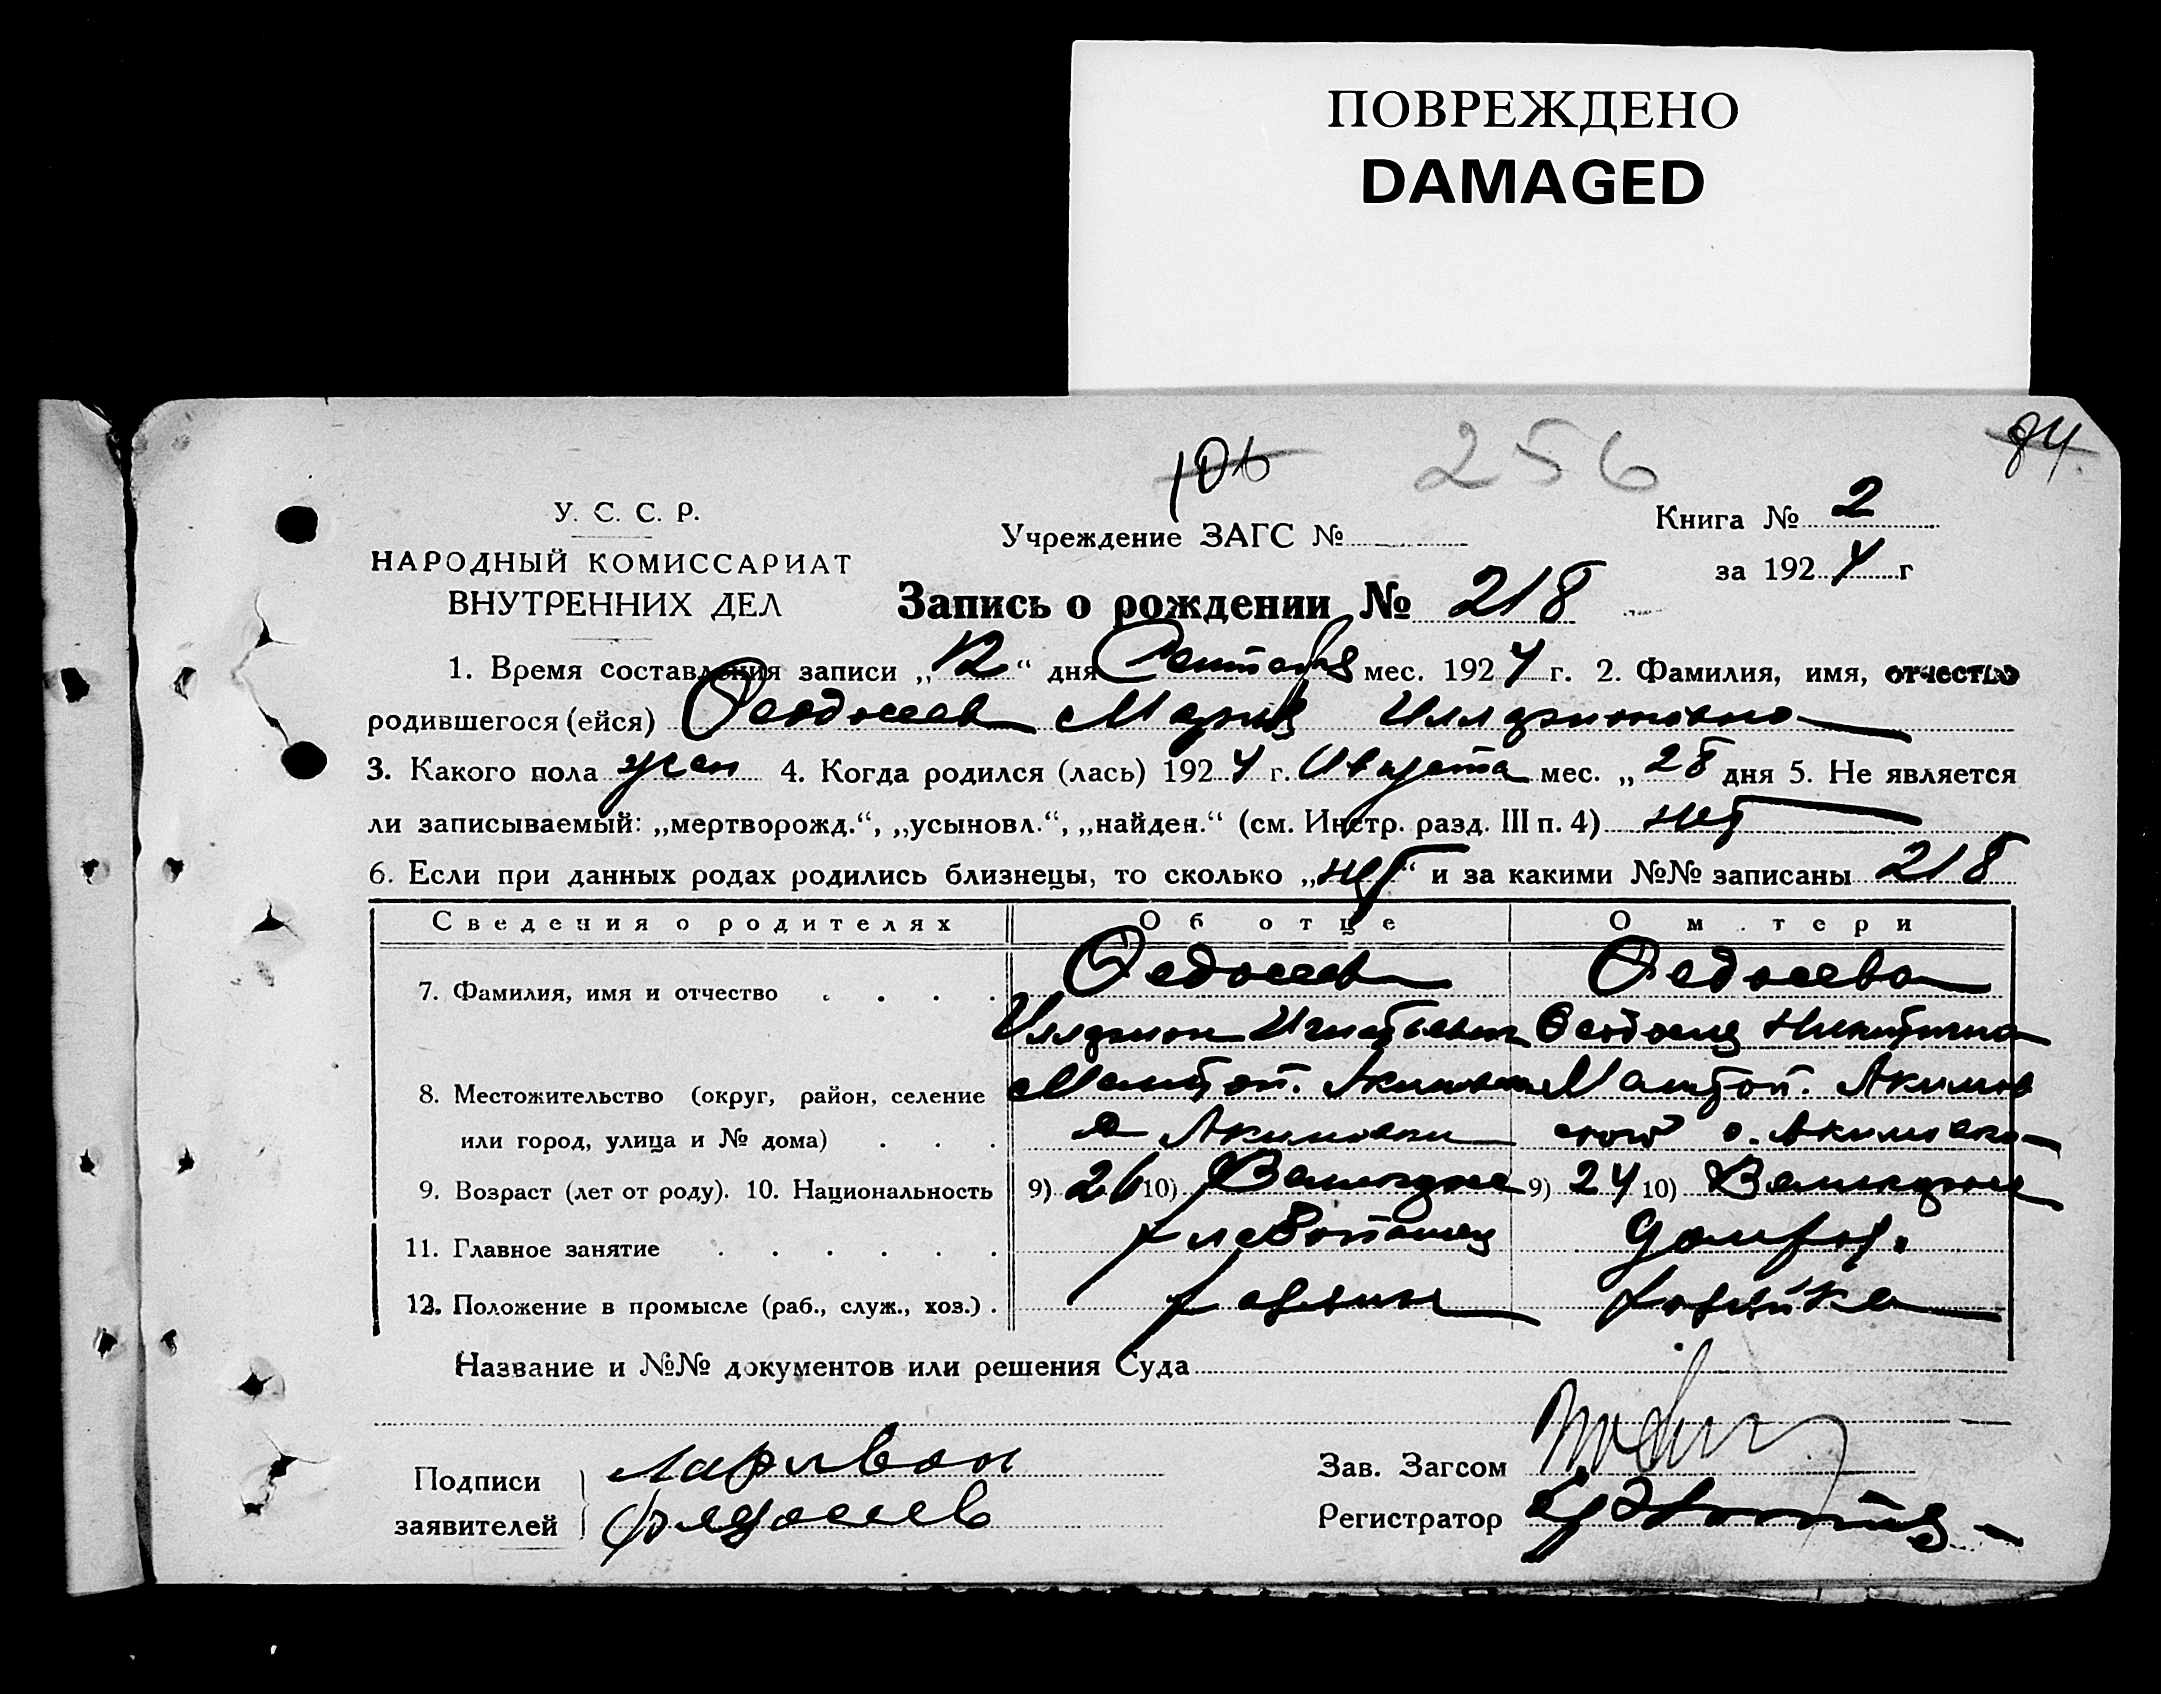 ПОВРЕЖДЕНО
DAMAGED
84
106 256
У. С. С. Р.
НАРОДНЫЙ КОМИССАРИАТ
ВНУТРЕННИХ ДЕЛ
Учреждение ЗАГС №
Книга № 2
за 1924 г
Запись о рождении № 218
1. Время составления записи „12“ дня Сентября мес. 1924 г. 2. Фамилия, имя, отчество
родившегося (ейся) Феодосеев Мария Илларионовна
3. Какого пола жен 4. Когда родился (лась) 1924 г. Августа мес. „28 дня 5. Не является
ли записываемый: „мертворожд.“, „усыновл.“, „найден.“ (см. Инстр. разд. III п. 4) нет
6. Если при данных родах родились близнецы, то сколько „нет“ и за какими №№ записаны 218
Сведения о родителях Об отце О м тери
7. Фамилия, имя и отчество Федосеев Федосеева
Илларион Никитична
8. Местожительство (округ, район, селение Мелитоп. Мелитоп. Акимов
или город, улица и № дома) Акимовки ской с. Акимовка
9. Возраст (лет от роду). 10. Национальность 9) 26 10) Великорос 9) 24 10) Великорос
11. Главное занятие хлебопашец домхоз.
12. Положение в промысле (раб., служ., хоз.) хозяин хозяйка
Название и №№ документов или решения Суда
Подписи заявителей ларивон
федосеев
Зав. Загсом
Регистратор